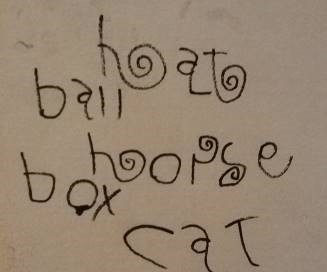 hoato
ball
hoopse
box
cat